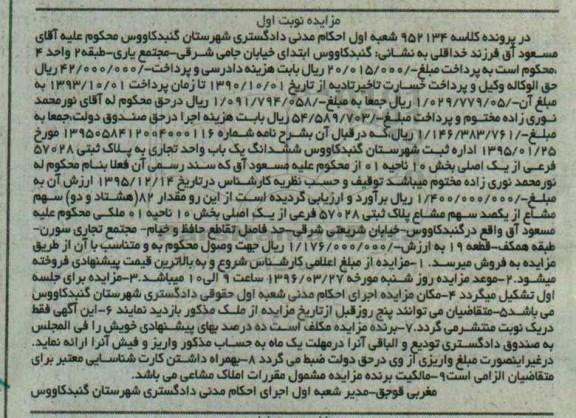 مزایده نوبت اول
در پرونده کلاسه ۹۵۲۱۳۴ شعبه اول احکام مدنی دادگستری شهرستان گنبدکاووس محکوم علیه آقای
مسعود آق فرزند خداقلی به نشانی: گنبدکاووس ابتدای خیابان جامی شرقی-مجتمع یاری-طبقه۲ واحد ۴
،محکوم است به پرداخت مبلغ-/۲۰/۰۱۵/۰۰۰ ریال بابت هزینه دادرسی و پرداخت-/۴۲/۰۰۰/۰۰۰ ریال
حق الوکاله وکیل و پرداخت خسارت تاخیرتادیه از تاریخ ۱۳۹۰/۱۰/۰۱ تا زمان پرداخت ۱۳۹۳/۱۰/۰۱ به
مبلغ آن-/۱/۰۲۹/۷۷۹/۰۵ ریال جمعا به مبلغ-/۱/۰۹۱/۷۹۴/۰۵۸ ریال درحق محکوم له آقای نورمحمد
نوری زاده مختوم و پرداخت مبلغ-/۵۴/۵۸۹/۷۰۳ ریال بابت هزینه اجرا درحق صندوق دولت،جمعا به
مبلغ-/۱/۱۴۶/۳۸۳/۷۶۱ ریال،که درقبال آن بشرح نامه شماره ۱۳۹۵۰۵۸۴۱۲۰۰۴۰۰۰۱۱۶ مورخ
۱۳۹۵/۰۱/۲۵ اداره ثبت شهرستان گنبدکاووس ششدانگ یک باب واحد تجاری به پلاک ثبتی ۵۷۰۲۸
فرعی از یک اصلی بخش ۱۰ ناحیه ۰۱ از محکوم علیه مسعود آق که سند رسمی آن فعلا بنام محکوم له
نورمحمد نوری زاده مختوم میباشد توقیف و حسب نظریه کارشناس درتاریخ ۱۳۹۵/۱۲/۱۴ ارزش آن به
مبلغ-/۱/۴۰۰/۰۰۰/۰۰۰ ریال برآورد و ارزیابی گردیده است از این رو مقدار ۸۲(هشتاد و دو) سهم
مشاع از یکصد سهم مشاع پلاک ثبتی ۵۷۰۲۸ فرعی از یک اصلی بخش ۱۰ ناحیه ۰۱ ملکی محکوم علیه
مسعود آق واقع درگنبدکاووس-خیابان شریعتی شرقی-حد فاصل تقاطع حافظ و خیام- مجتمع تجاری سورن-
طبقه همکف-قطعه ۱۹ به ارزش-/۱/۱۷۶/۰۰۰/۰۰۰ ریال جهت وصول محکوم به و متناسب با آن از طریق
مزایده به فروش میرسد. ۱-مزایده از مبلغ اعلامی کارشناس شروع و به بالاترین قیمت پیشنهادی فروخته
میشود.۲-موعد مزایده روز شنبه مورخه ۱۳۹۶/۰۳/۲۷ ساعت ۹ الی۱۰ میباشد.۳-مزایده برای جلسه
اول تشکیل میگردد ۴-مکان مزایده اجرای احکام مدنی شعبه اول حقوقی دادگستری شهرستان گنبدکاووس
می باشد۵-متقاضیان می توانند پنج روزقبل ازتاریخ مزایده از ملک مذکور بازدید نمایند ۶-این آگهی فقط
دریک نوبت منتشرمی گردد.۷-برنده مزایده مکلف است ده درصد بهای پیشنهادی خویش را فی المجلس
به صندوق دادگستری تودیع و الباقی آنرا درمهلت یک ماه به حساب مذکور واریز و فیش آنرا ارائه نماید.
درغیراینصورت مبلغ واریزی از وی درحق دولت ضبط می گردد ۸-بهمراه داشتن کارت شناسایی معتبر برای
متقاضیان الزامی است۹-مالکیت برنده مزایده مشمول مقررات املاک مشاعی می باشد.
مغربی قوجق-مدیر شعبه اول اجرای احکام مدنی دادگستری شهرستان گنبدکاووس